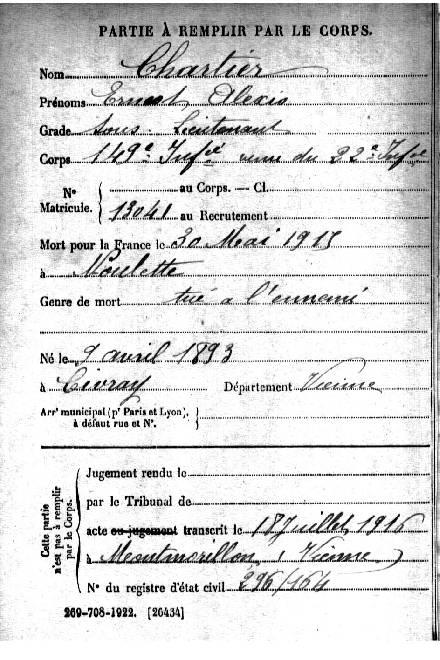 PARTIE À REMPLIR PAR LE CORPS.
Nom Chartier
Prénoms Ernest Alexis
Grade Sous-Lieutenant
Corps 149e Infie venu du 22e Infie
N° Matricule. { au Corps. — Cl.
13041 au Recrutement
Mort pour la France le 30 Mai 1915
à Noulette
Genre de mort tué à l'ennemi
Né le 9 avril 1893
à Civray Département Vienne
Arrt municipal (pr Paris et Lyon), à défaut rue et N°. }
Cette partie n'est pas à remplir par le Corps. {
Jugement rendu le
par le Tribunal de
acte ou jugement transcrit le 18 Juillet 1916
à Montmorillon (Vienne)
N° du registre d'état civil 296/164
269-708-1922. [26434]